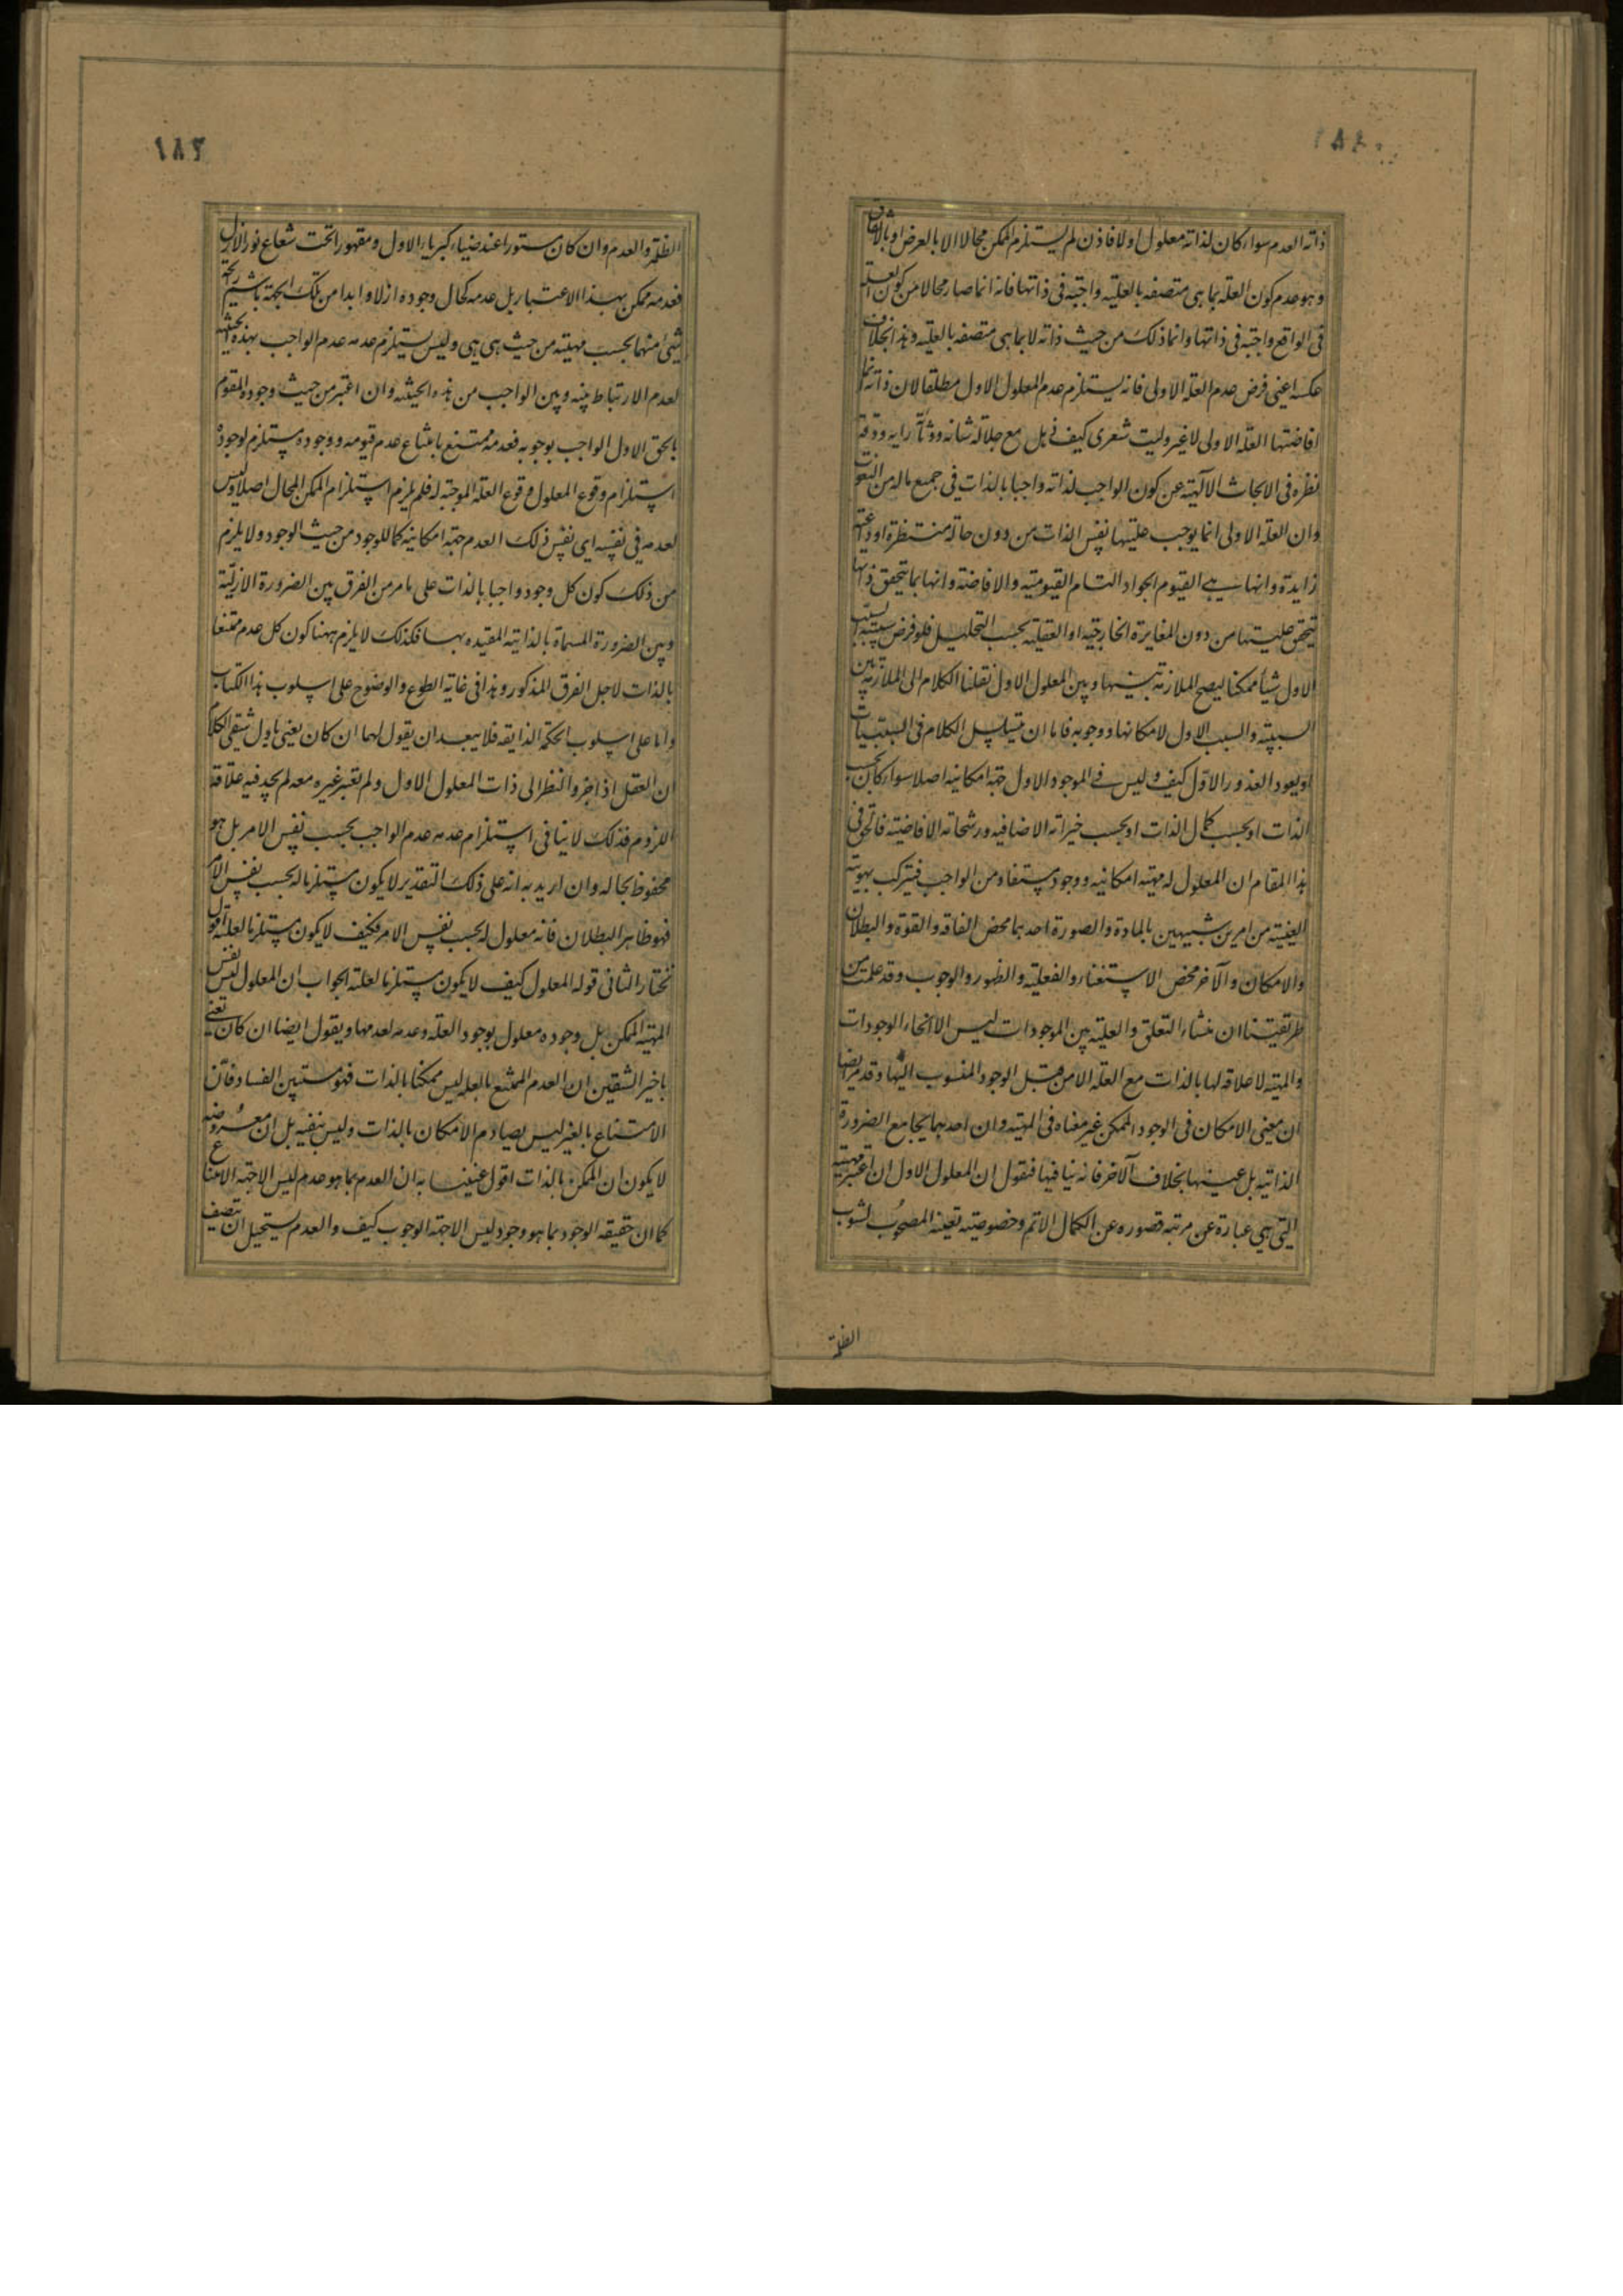 ذاته العدم سواء كان لذاته معلول اولا فاذن لم يستلزم الممكن محالا الا بالعرض او بالاتفاق
وهو عدم كون العلة بما هى متصفه بالعليه واجبة فى ذاتها فانه انما صار محالا من كون العلة
فى الواقع واجبة فى ذاتها وانما ذلك من حيث ذاته لا بما هى متصفه بالعليه وهذا بخلاف
عكسه اعنى فرض عدم العلة الاولى فانه يستلزم عدم المعلول الاول مطلقا لان ذاته انما
افاضتها العلة الاولى لا غير وليت شعرى كيف ذهل مع جلالة شانه ووثاقة رايه ودقة
نظره فى الابحاث الآلهية عن كون الواجب لذاته واجبا بالذات فى جميع ماله من النعوت
وان العلة الاولى انما يوجب عليتها نفس الذات من دون حالة منتظرة او داعية
زايدة وانها هى القيوم الجواد التام القيومية والافاضة وانها بما يتحقق ذاتها
يتحقق عليتها من دون المغايرة الخارجية او العقلية بحسب التحليل فلو فرض سببية السبب
الاول شيأ ممكنا ليصح الملازمة بينها وبين المعلول الاول نقلنا الكلام الى الملازمة بين
السببية والسبب الاول لامكانها ووجوبه فاما ان يتسلسل الكلام فى السببيات
او يعود المحذور الاول كيف وليس فى الموجود الاول جهة امكانية اصلا سواء كان بحسب
الذات او بحسب كمال الذات او بحسب خيراته الاضافيه ورشحاته الافاضية فالحق فى
هذا المقام ان المعلول له مهية امكانيه ووجود مستفاد من الواجب فيتركب بهويته
العينية من امرين شبيهين بالمادة والصورة احدهما محض الفاقه والقوة والبطلان
والامكان والآخر محض الاستغناء والفعلية والظهور والوجوب وقد علمت من
طريقتنا ان منشاء التعلق والعلية بين الموجودات ليس الا انحاء الوجودات
والمهية لا علاقه لها بالذات مع العلة الا من قبل الوجود المنسوب اليها وقد مر ايضا
ان معنى الامكان فى الوجود الممكن غير معناه فى المهية وان احدهما يجامع الضرورة
الذاتية بل عينها بخلاف الآخر فانه ينافيها فنقول ان المعلول الاول ان اعتبر مهيته
التى هى عبارة عن مرتبة قصوره عن الكمال الاتم وخصوصية تعينه المصحوب لشوب
الظلمة
١٨٢
الظلمة والعدم وان كان مستورا عند ضياء كبرياء الاول ومقهورا تحت شعاع نور الازل
فعدمه ممكن بهذا الاعتبار بل عدمه كحال وجوده ازلا وابدا من تلك الجهة ما شم رائحة
شئ منهما بحسب مهيته من حيث هى هى وليس يستلزم عدمه عدم الواجب بهذه الحيثية
لعدم الارتباط بينه وبين الواجب من هذه الحيثية وان اعتبر من حيث وجوده المتقوم
بالحق الاول الواجب بوجوبه فعدمه ممتنع بامتناع عدم قيومه ووجوده مستلزم لوجوده
استلزام وقوع المعلول وقوع العلة الموجبة له فلم يلزم استلزام الممكن المحال اصلا وليس
لعدمه فى نفسه اى نفس ذلك العدم جهة امكانية كما للوجود من حيث الوجود ولا يلزم
من ذلك كون كل وجود واجبا بالذات على ما مر من الفرق بين الضرورة الازلية
وبين الضرورة المسماة بالذاتية المقيده بها فكذلك لا يلزم ههنا كون كل عدم ممتنعا
بالذات لاجل الفرق المذكور وهذا فى غاية السطوع والوضوح على اسلوب هذا الكتاب
واما على اسلوب الحكمة الذايعة فلا يبعد ان يقول لهما ان كان يعنى باول شقى الكلام
ان العقل اذا جرد النظر الى ذات المعلول الاول ولم يعتبر غيره معه لم يجد فيه علاقة
اللزوم فذلك لا ينافى استلزام عدمه عدم الواجب بحسب نفس الامر بل هو
محفوظ بحاله وان اريد به انه على ذلك التقدير لا يكون مستلزما له بحسب نفس الامر
فهو ظاهر البطلان فانه معلول له بحسب نفس الامر فكيف لا يكون مستلزما لعلته اقول
نختار الثانى قوله المعلول كيف لا يكون مستلزما لعلته الجواب ان المعلول ليس نفس
المهية الممكن بل وجوده معلول بوجود العلة وعدمه لعدمها ويقول ايضا ان كان يعنى
باخير الشقين ان العدم الممتنع بالعلة ليس ممكنا بالذات فهو مستبين الفساد فان
الامتناع بالغير ليس يصادم الامكان بالذات وليس ينفيه بل ان معروضه
لا يكون ان الممكن بالذات اقول عنينا به ان العدم بما هو عدم ليس الا جهة الامتناع
كما ان حقيقه الوجود بما هو وجود ليس الا جهة الوجوب كيف والعدم يستحيل ان يتصف